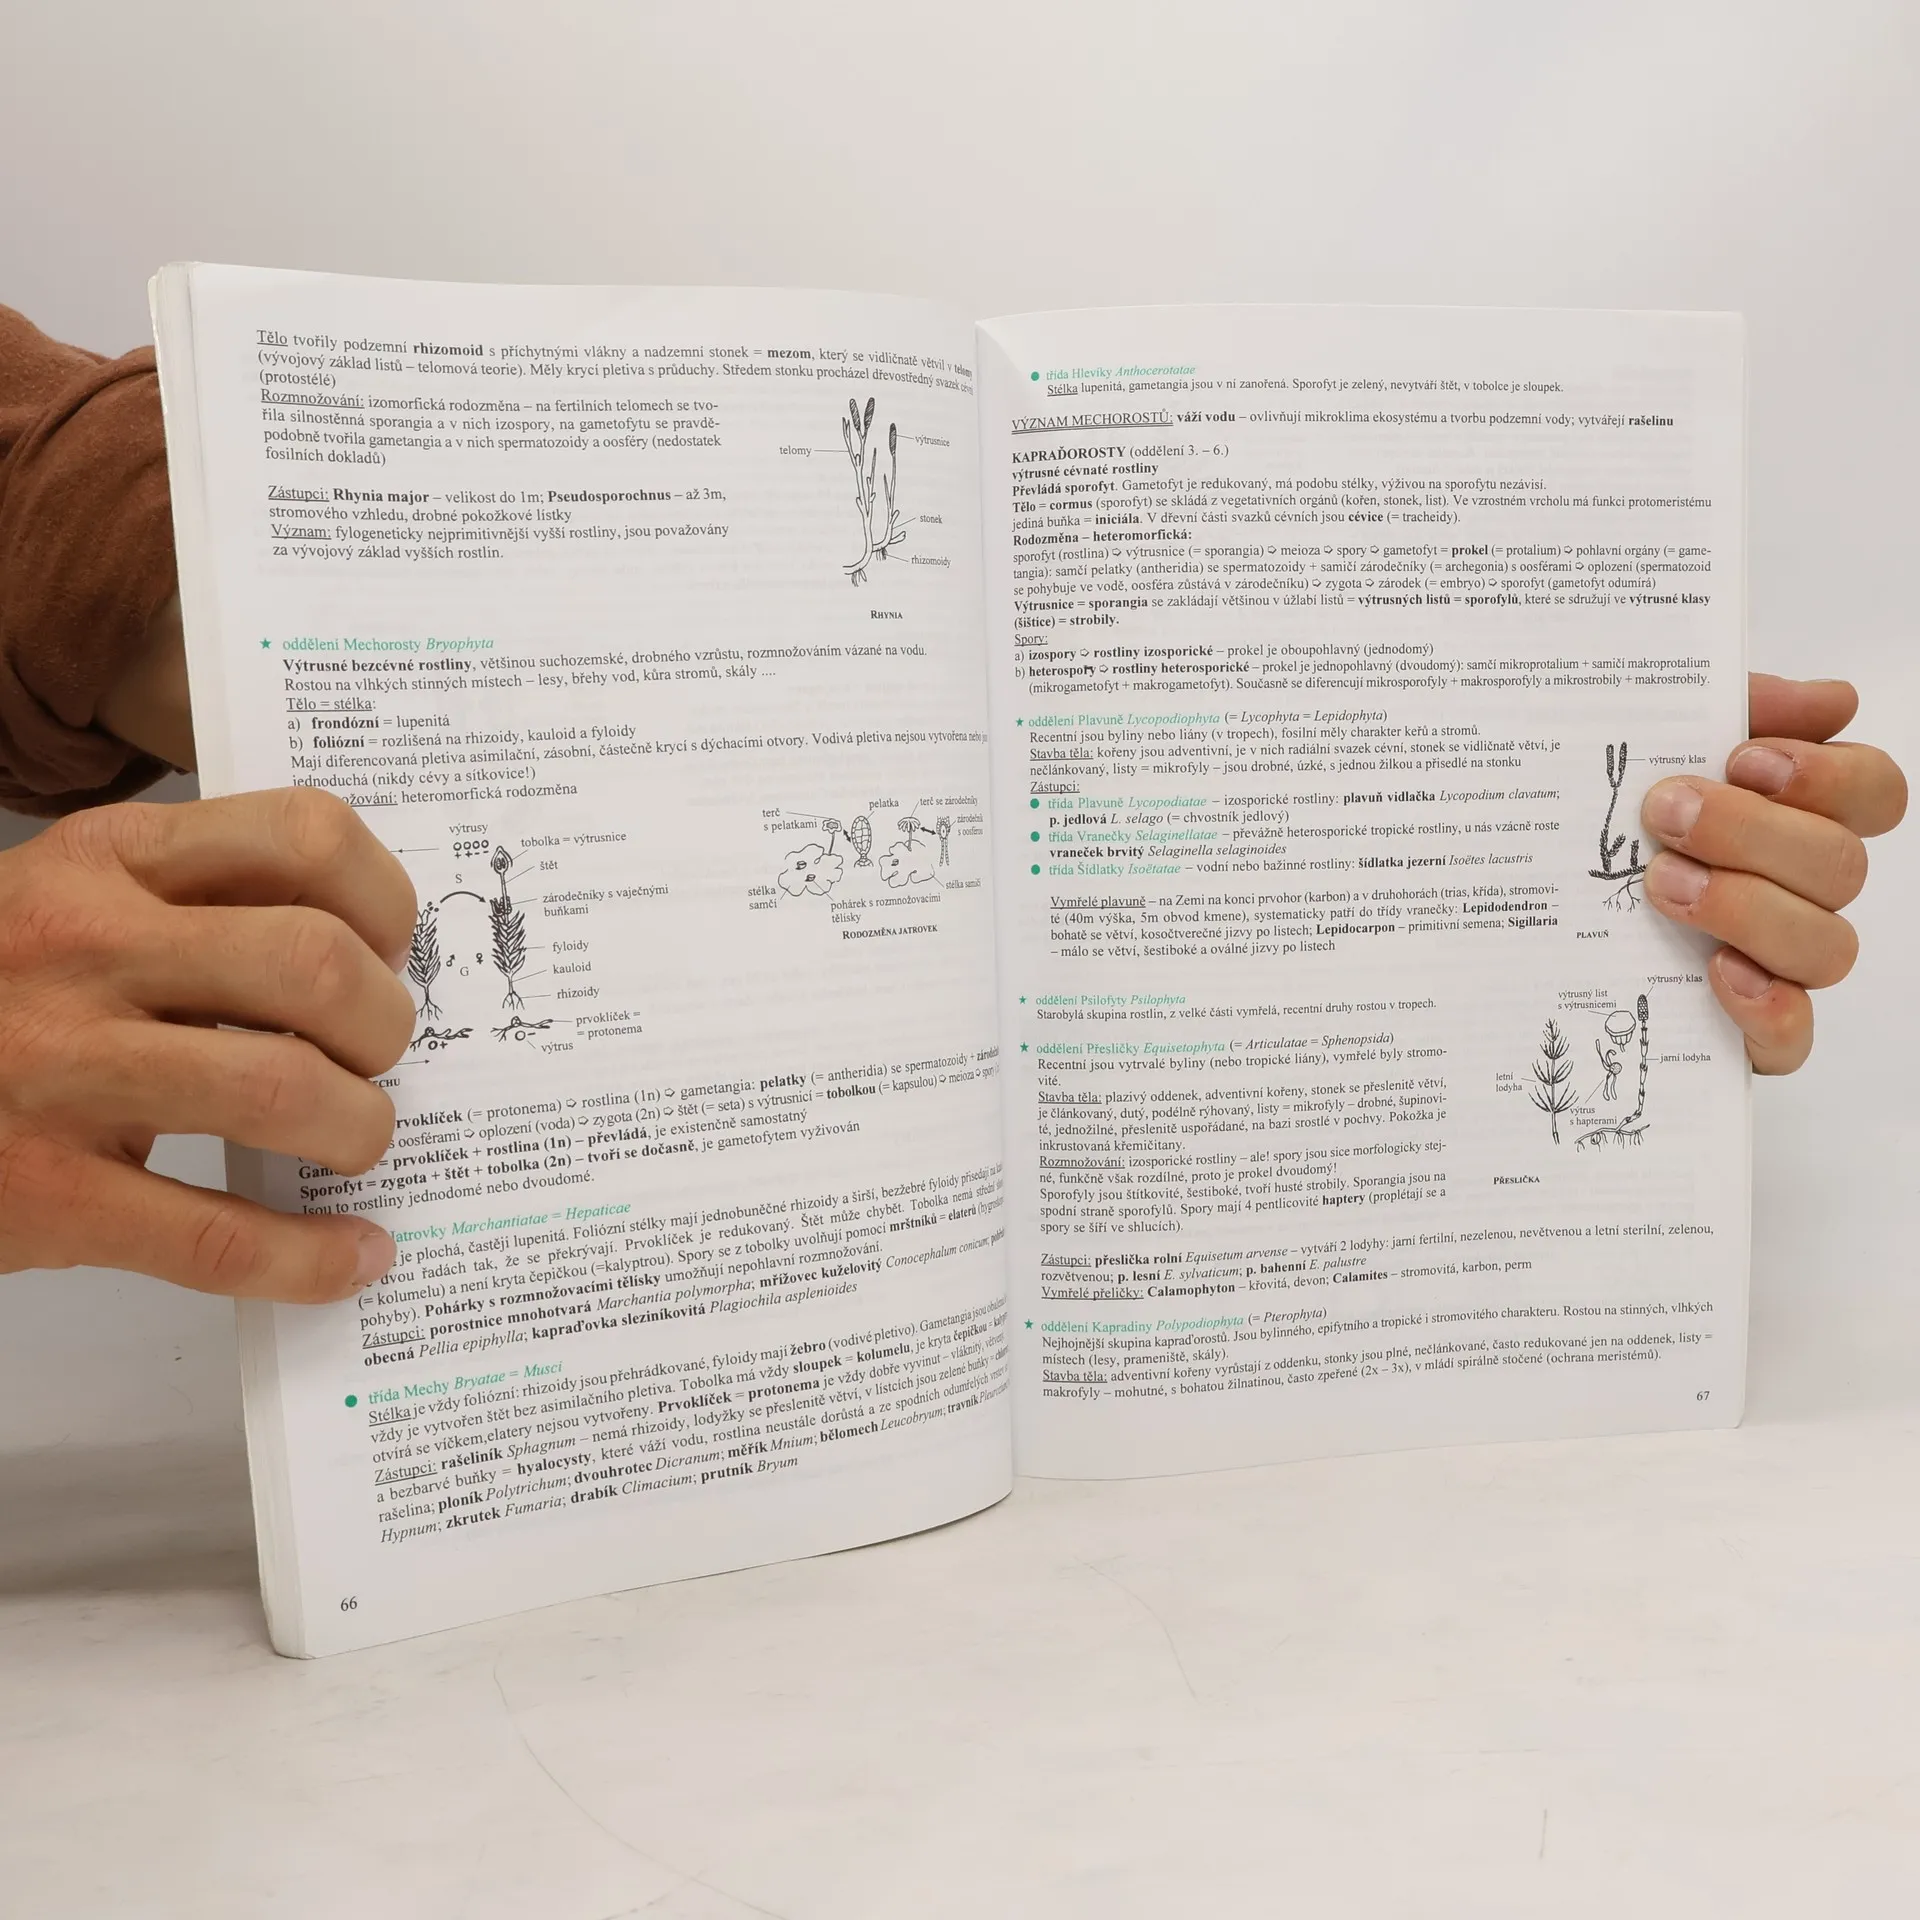 Tělo tvořily podzemní rhizomoid s příchytnými vlákny a nadzemní stonek = mezom, který se vidličnatě větvil v telomy
(vývojový základ listů – telomová teorie). Měly krycí pletiva s průduchy. Středem stonku procházel dřevostředný svazek
(protostélé)
Rozmnožování: izomorfická rodozměna – na fertilních telomech se tvo-
řila silnostěnná sporangia a v nich izospory, na gametofytu se pravdě-
podobně tvořila gametangia a v nich spermatozoidy a oosféry (nedostatek
fosilních dokladů)
Zástupci: Rhynia major – velikost do 1m; Pseudosporochnus – až 3m,
stromového vzhledu, drobné pokožkové lístky
Význam: fylogeneticky nejprimitivnější vyšší rostliny, jsou považovány
za vývojový základ vyšších rostlin.
telomy
výtrusnice
stonek
rhizomoidy
RHYNIA
★ oddělení Mechorosty Bryophyta
Výtrusné bezcévné rostliny, většinou suchozemské, drobného vzrůstu, rozmnožováním vázané na vodu.
Rostou na vlhkých stinných místech – lesy, břehy vod, kůra stromů, skály ....
Tělo = stélka:
a) frondózní = lupenitá
b) foliózní = rozlišená na rhizoidy, kauloid a fyloidy
Mají diferencovaná pletiva asimilační, zásobní, částečně krycí s dýchacími otvory. Vodivá pletiva nejsou vytvořena nebo
jednoduchá (nikdy cévy a sítkovice!)
ožování: heteromorfická rodozměna
výtrusy
S
tobolka = výtrusnice
štět
zárodečníky s vaječnými
buňkami
♂ G ♀
fyloidy
kauloid
rhizoidy
prvoklíček =
= protonema
výtrus
ECHU
terč
s pelatkami
pelatka
terč se zárodečníky
zárodečník
s oosférou
stélka
samčí
stélka samičí
pohárek s rozmnožovacími
tělísky
RODOZMĚNA JATROVEK
rvoklíček (= protonema) ➭ rostlina (1n) ➭ gametangia: pelatky (= antheridia) se spermatozoidy +
s oosférami ➭ oplození (voda) ➭ zygota (2n) ➭ štět (= seta) s výtrusnicí = tobolkou (= kapsulou) ➭ meioza ➭ spory
= prvoklíček + rostlina (1n) – převládá, je existenčně samostatný
Sporofyt = zygota + štět + tobolka (2n) – tvoří se dočasně, je gametofytem vyživován
Jsou to rostliny jednodomé nebo dvoudomé.
Jatrovky Marchantiatae = Hepaticae
je plochá, častěji lupenitá. Foliózní stélky mají jednobuněčné rhizoidy a širší, bezžebré fyloidy přisedají na
dvou řadách tak, že se překrývají. Prvoklíček je redukovaný. Štět může chybět. Tobolka nemá střední
(= kolumelu) a není kryta čepičkou (=kalyptrou). Spory se z tobolky uvolňují pomocí mrštníků = elaterů
pohyby). Pohárky s rozmnožovacími tělísky umožňují nepohlavní rozmnožování.
Zástupci: porostnice mnohotvará Marchantia polymorpha; mřížovec kuželovitý Conocephalum conicum;
obecná Pellia epiphylla; kapraďovka sleziníkovitá Plagiochila asplenioides
● třída Mechy Bryatae = Musci
Stélka je vždy foliózní: rhizoidy jsou přehrádkované, fyloidy mají žebro (vodivé pletivo). Gametangia jsou
vždy je vytvořen štět bez asimilačního pletiva. Tobolka má vždy sloupek = kolumelu, je kryta čepičkou =
otvírá se víčkem,elatery nejsou vytvořeny. Prvoklíček = protonema je vždy dobře vyvinut – vláknitý, větvený
Zástupci: rašeliník Sphagnum – nemá rhizoidy, lodyžky se přeslenitě větví, v lístcích jsou zelené buňky =
a bezbarvé buňky = hyalocysty, které váží vodu, rostlina neustále dorůstá a ze spodních odumřelých
rašelina; ploník Polytrichum; dvouhrotec Dicranum; měřík Mnium; bělomech Leucobryum; travník
Hypnum; zkrutek Fumaria; drabík Climacium; prutník Bryum
66
● třída Hlevíky Anthocerotatae
Stélka lupenitá, gametangia jsou v ní zanořená. Sporofyt je zelený, nevytváří štět, v tobolce je sloupek.
VÝZNAM MECHOROSTŮ: váží vodu – ovlivňují mikroklima ekosystému a tvorbu podzemní vody; vytvářejí rašelinu
KAPRAĎOROSTY (oddělení 3. – 6.)
výtrusné cévnaté rostliny
Převládá sporofyt. Gametofyt je redukovaný, má podobu stélky, výživou na sporofytu nezávisí.
Tělo = cormus (sporofyt) se skládá z vegetativních orgánů (kořen, stonek, list). Ve vzrostném vrcholu má funkci protomeristému
jediná buňka = iniciála. V dřevní části svazků cévních jsou cévice (= tracheidy).
Rodozměna – heteromorfická:
sporofyt (rostlina) ➭ výtrusnice (= sporangia) ➭ meioza ➭ spory ➭ gametofyt = prokel (= protalium) ➭ pohlavní orgány (= game-
tangia): samčí pelatky (antheridia) se spermatozoidy + samičí zárodečníky (= archegonia) s oosférami ➭ oplození (spermatozoid
se pohybuje ve vodě, oosféra zůstává v zárodečníku) ➭ zygota ➭ zárodek (= embryo) ➭ sporofyt (gametofyt odumírá)
Výtrusnice = sporangia se zakládají většinou v úžlabí listů = výtrusných listů = sporofylů, které se sdružují ve výtrusné klasy
(šištice) = strobily.
Spory:
a) izospory ➭ rostliny izosporické – prokel je oboupohlavný (jednodomý)
b) heterospory ➭ rostliny heterosporické – prokel je jednopohlavný (dvoudomý): samčí mikroprotalium + samičí makroprotalium
(mikrogametofyt + makrogametofyt). Současně se diferencují mikrosporofyly + makrosporofyly a mikrostrobily + makrostrobily.
★ oddělení Plavuně Lycopodiophyta (= Lycophyta = Lepidophyta)
Recentní jsou byliny nebo liány (v tropech), fosilní měly charakter keřů a stromů.
Stavba těla: kořeny jsou adventivní, je v nich radiální svazek cévní, stonek se vidličnatě větví, je
nečlánkovaný, listy = mikrofyly – jsou drobné, úzké, s jednou žilkou a přisedlé na stonku
Zástupci:
● třída Plavuně Lycopodiatae – izosporické rostliny: plavuň vidlačka Lycopodium clavatum;
p. jedlová L. selago (= chvostník jedlový)
● třída Vranečky Selaginellatae – převážně heterosporické tropické rostliny, u nás vzácně roste
vraneček brvitý Selaginella selaginoides
● třída Šídlatky Isoëtatae – vodní nebo bažinné rostliny: šídlatka jezerní Isoëtes lacustris
Vymřelé plavuně – na Zemi na konci prvohor (karbon) a v druhohorách (trias, křída), stromovi-
té (40m výška, 5m obvod kmene), systematicky patří do třídy vranečky: Lepidodendron –
bohatě se větví, kosočtverečné jizvy po listech; Lepidocarpon – primitivní semena; Sigillaria
– málo se větví, šestiboké a oválné jizvy po listech
výtrusný klas
PLAVUŇ
★ oddělení Psilofyty Psilophyta
Starobylá skupina rostlin, z velké části vymřelá, recentní druhy rostou v tropech.
★ oddělení Přesličky Equisetophyta (= Articulatae = Sphenopsida)
Recentní jsou vytrvalé byliny (nebo tropické liány), vymřelé byly stromo-
vité.
Stavba těla: plazivý oddenek, adventivní kořeny, stonek se přeslenitě větví,
je článkovaný, dutý, podélně rýhovaný, listy = mikrofyly – drobné, šupinovi-
té, jednožilné, přeslenitě uspořádané, na bazi srostlé v pochvy. Pokožka je
inkrustovaná křemičitany.
Rozmnožování: izosporické rostliny – ale! spory jsou sice morfologicky stej-
né, funkčně však rozdílné, proto je prokel dvoudomý!
Sporofyly jsou štítkovité, šestiboké, tvoří husté strobily. Sporangia jsou na
spodní straně sporofylů. Spory mají 4 pentlicovité haptery (proplétají se a
spory se šíří ve shlucích).
výtrusný klas
výtrusný list
s výtrusnicemi
jarní lodyha
letní
lodyha
výtrus
s hapterami
PŘESLIČKA
Zástupci: přeslička rolní Equisetum arvense – vytváří 2 lodyhy: jarní fertilní, nezelenou, nevětvenou a letní sterilní, zelenou,
rozvětvenou; p. lesní E. sylvaticum; p. bahenní E. palustre
Vymřelé přeličky: Calamophyton – křovitá, devon; Calamites – stromovitá, karbon, perm
★ oddělení Kapradiny Polypodiophyta (= Pterophyta)
Nejhojnější skupina kapraďorostů. Jsou bylinného, epifytního a tropické i stromovitého charakteru. Rostou na stinných, vlhkých
místech (lesy, prameniště, skály).
Stavba těla: adventivní kořeny vyrůstají z oddenku, stonky jsou plné, nečlánkované, často redukované jen na oddenek, listy =
makrofyly – mohutné, s bohatou žilnatinou, často zpeřené (2x – 3x), v mládí spirálně stočené (ochrana meristémů).
67